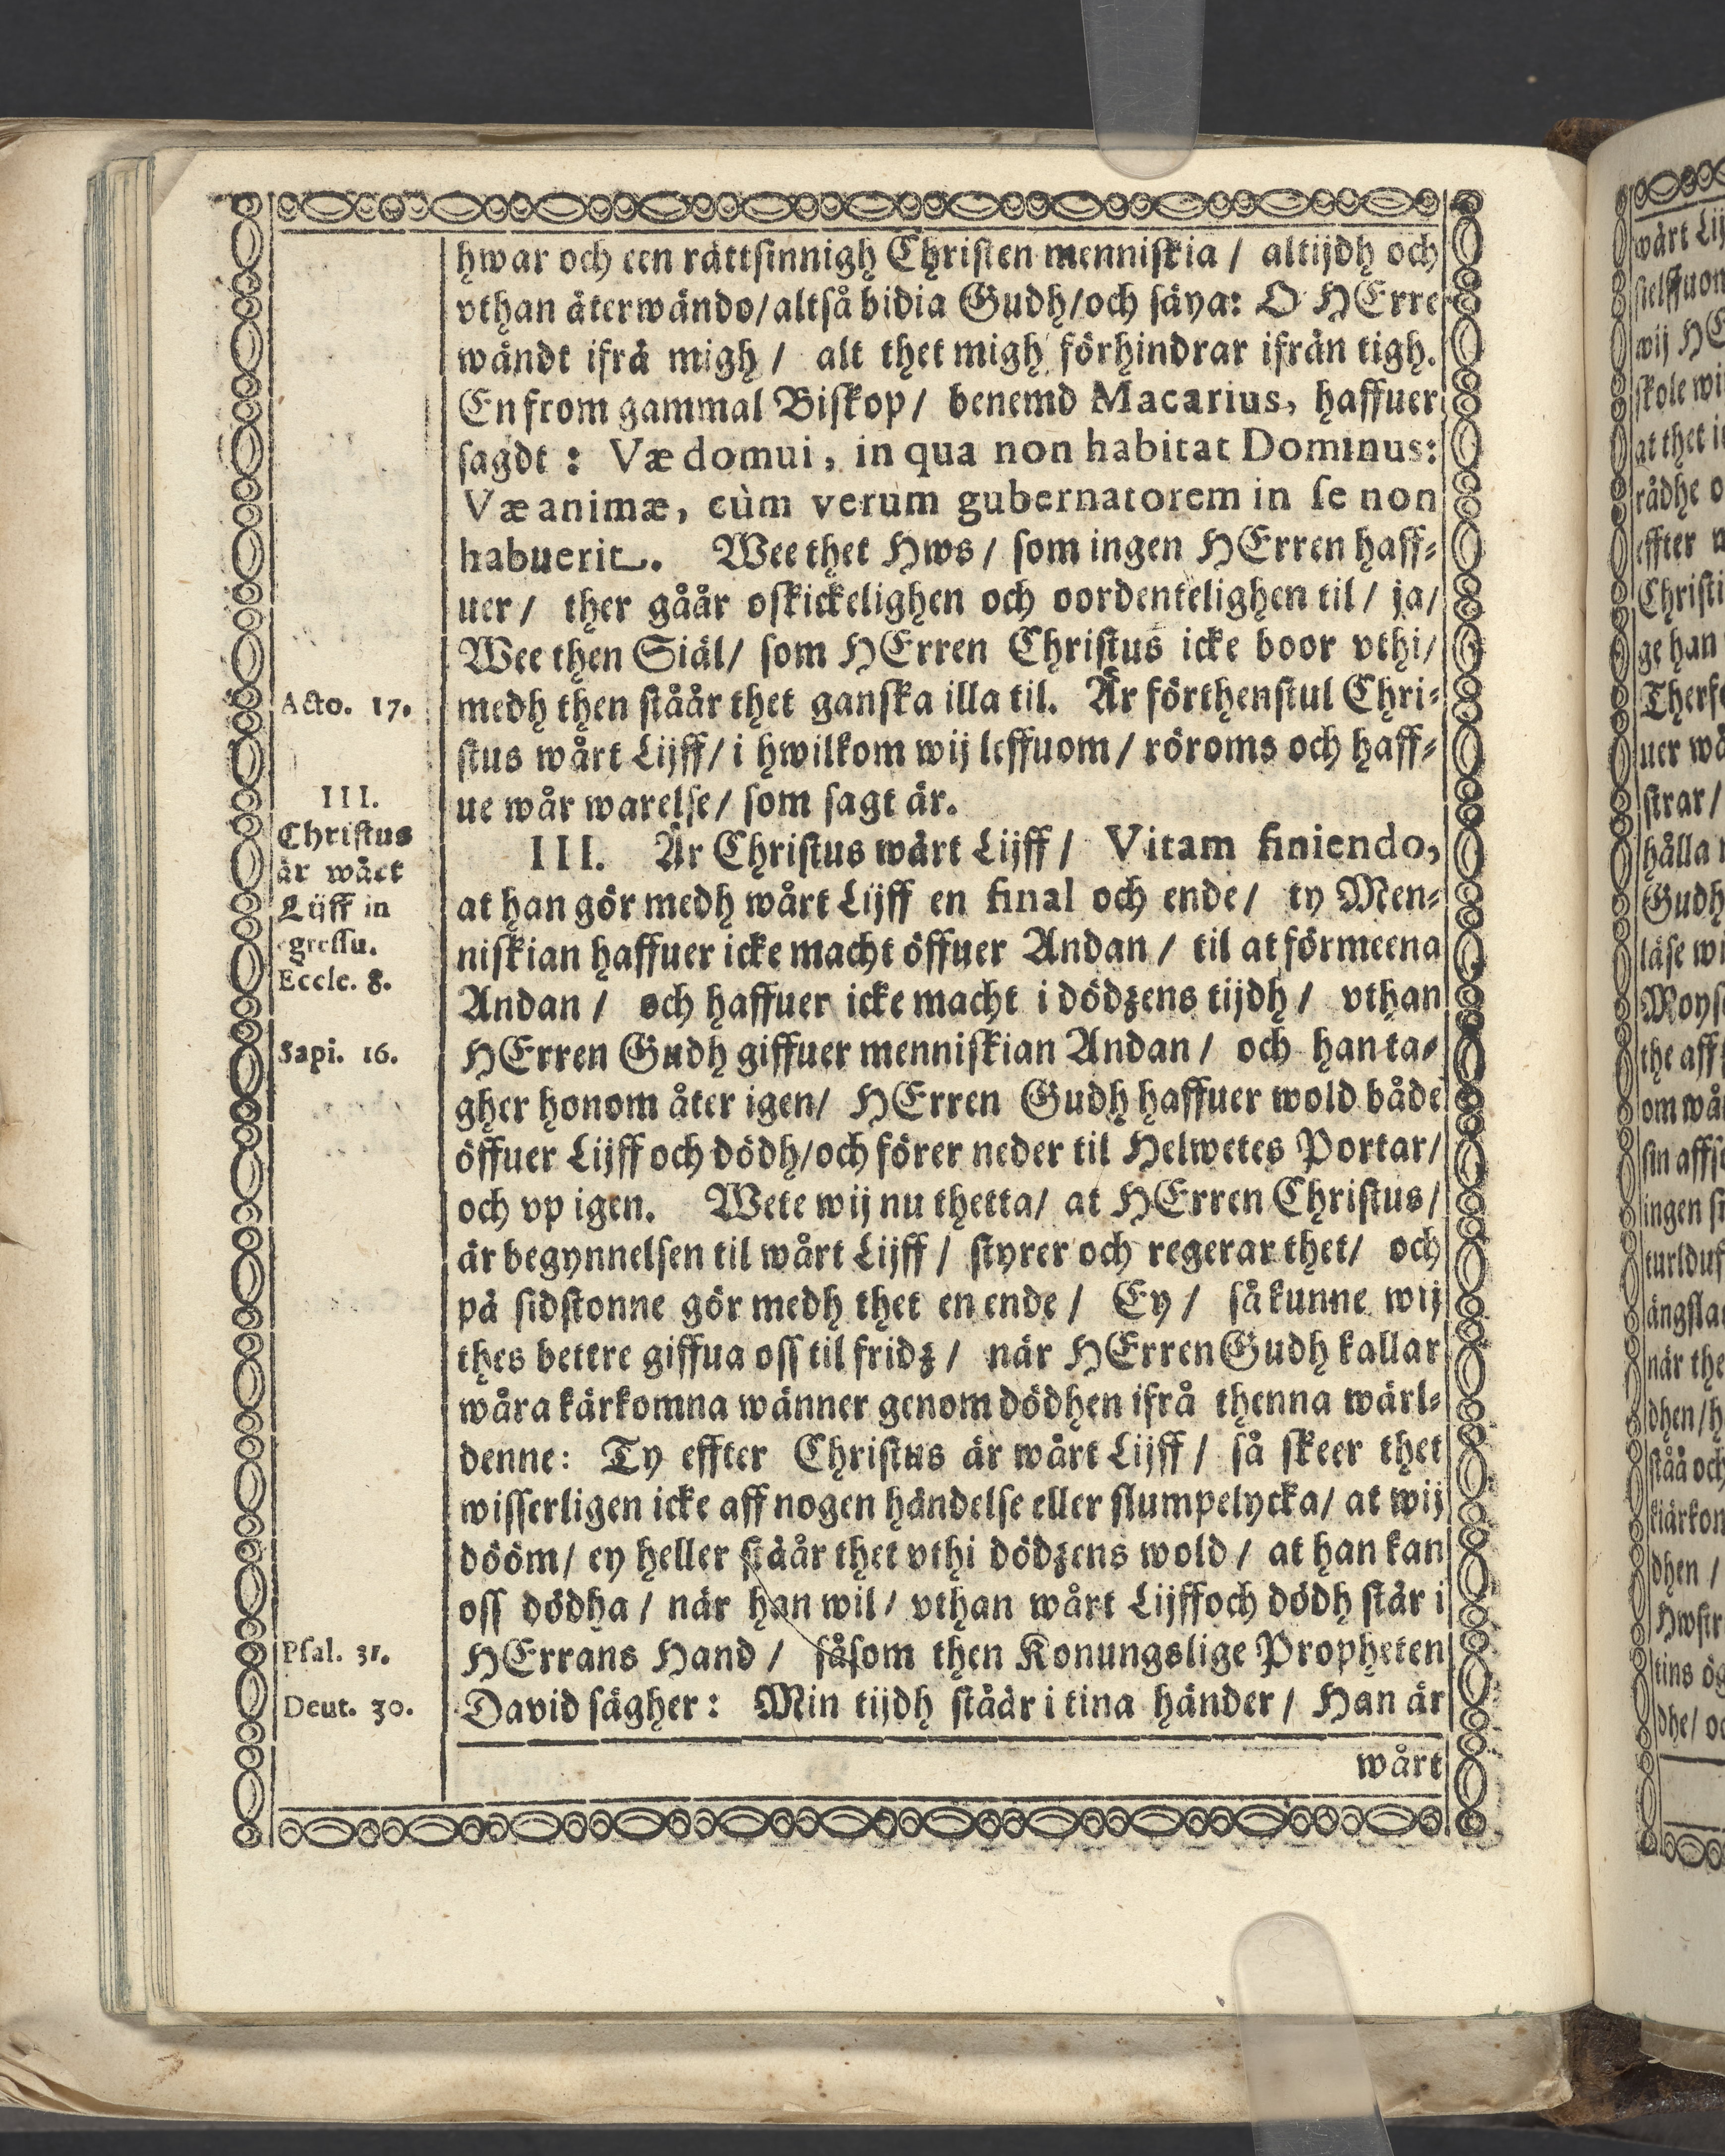 hwar och een rättsinnigh Christen menniskia / altijdh och
vthan återwändo/altså bidia Gudh/och säya: O HErre
wändt ifrå migh / alt thet migh förhindrar ifrån tigh.
En from gammal Biskop / benemd Macarius, haffuer
sagdt : Væ domui, in qua non habitat Dominus:
Væ animæ, cùm verum gubernatorem in se non
habuerit. Wee thet Hws / som ingen HErren haff-
uer / ther gåår oskickelighen och oordentelighen til / ja/
Wee then Siäl/ som HErren Christus icke boor vthi/
Acto. 17.
medh then ståår thet ganska illa til. Är förthenskul Chri-
stus wårt Lijff/ i hwilkom wij leffuom / röroms och haff-
ue wår warelse/ som sagt är.
III.
Christus
är wårt
Lijff in
egressu.
Eccle. 8.
III. Är Christus wårt Lijff / Vitam finiendo,
at han gör medh wårt Lijff en final och ende / ty Men-
niskian haffuer icke macht öffuer Andan / til at förmeena
Andan / och haffuer icke macht i dödzens tijdh / vthan
Sapi. 16.
HErren Gudh giffuer menniskian Andan / och han ta-
gher honom åter igen/ HErren Gudh haffuer wold både
öffuer Lijff och dödh/och förer neder til Helwetes Portar/
och vp igen. Wete wij nu thetta/ at HErren Christus /
är begynnelsen til wårt Lijff / styrer och regerar thet/ och
på sidstonne gör medh thet en ende / Ey / så kunne wij
thes bettre giffua oss til fridz / när HErren Gudh kallar
wåra kärkomna wänner genom dödhen ifrå thenna wärl-
denne: Ty effter Christus är wårt Lijff / så skeer thet
wisserligen icke aff nogen händelse eller slumpelycka/ at wij
dööm/ ey heller ståår thet vthi dödzens wold / at han kan
oss dödha / när han wil / vthan wårt Lijff och dödh står i
Psal. 31.
HErrans Hand / såsom then Konungslige Propheten
Deut. 30.
David sägher : Min tijdh ståår i tina händer / Han är
wårt